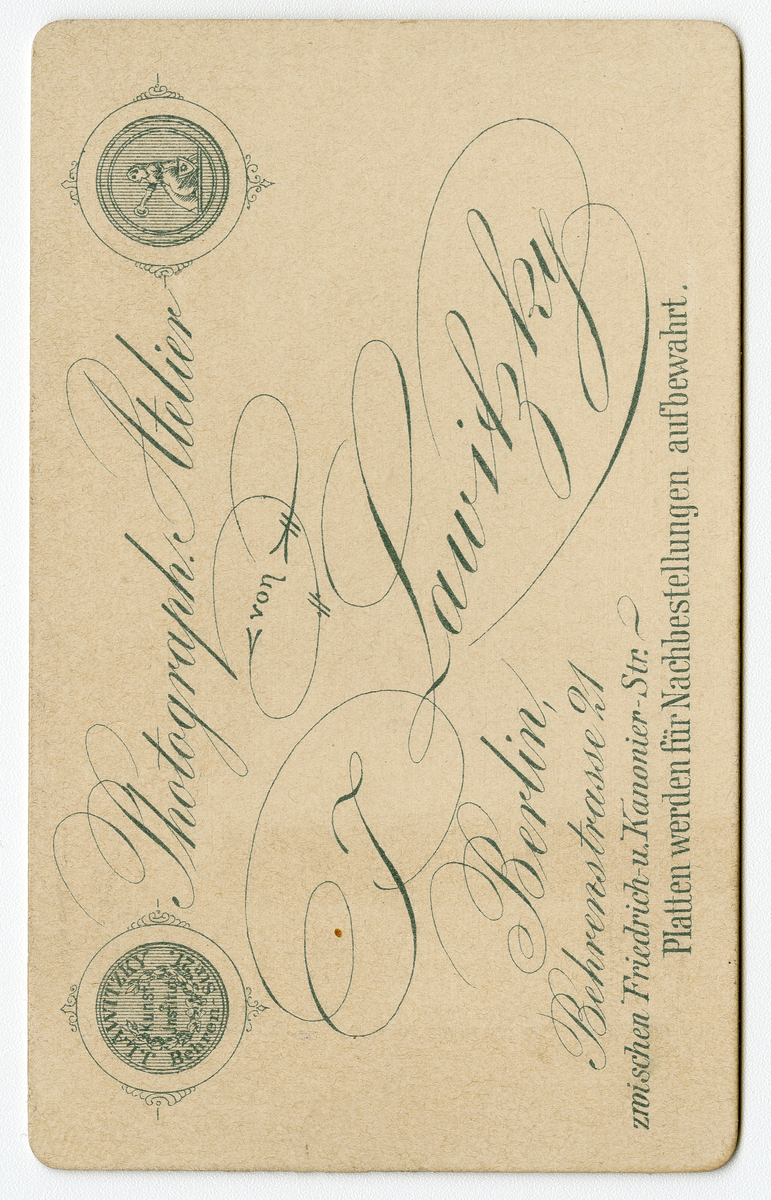 J. LAWITZKY
Kunst
Institut
Behren-Str. 21.
Photograph. Atelier
von
J. Lawitzky
Berlin,
Behrenstrasse 21
zwischen Friedrich-u. Kanonier-Str.
Platten werden für Nachbestellungen aufbewahrt.